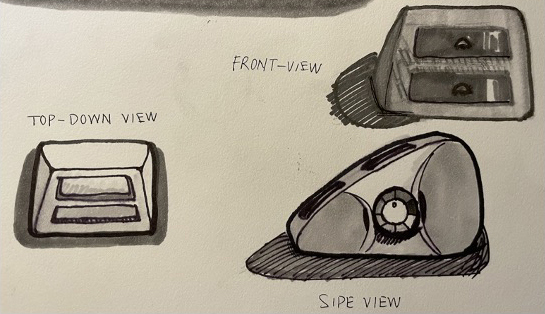 FRONT-VIEW
TOP-DOWN VIEW
SIPE VIEW